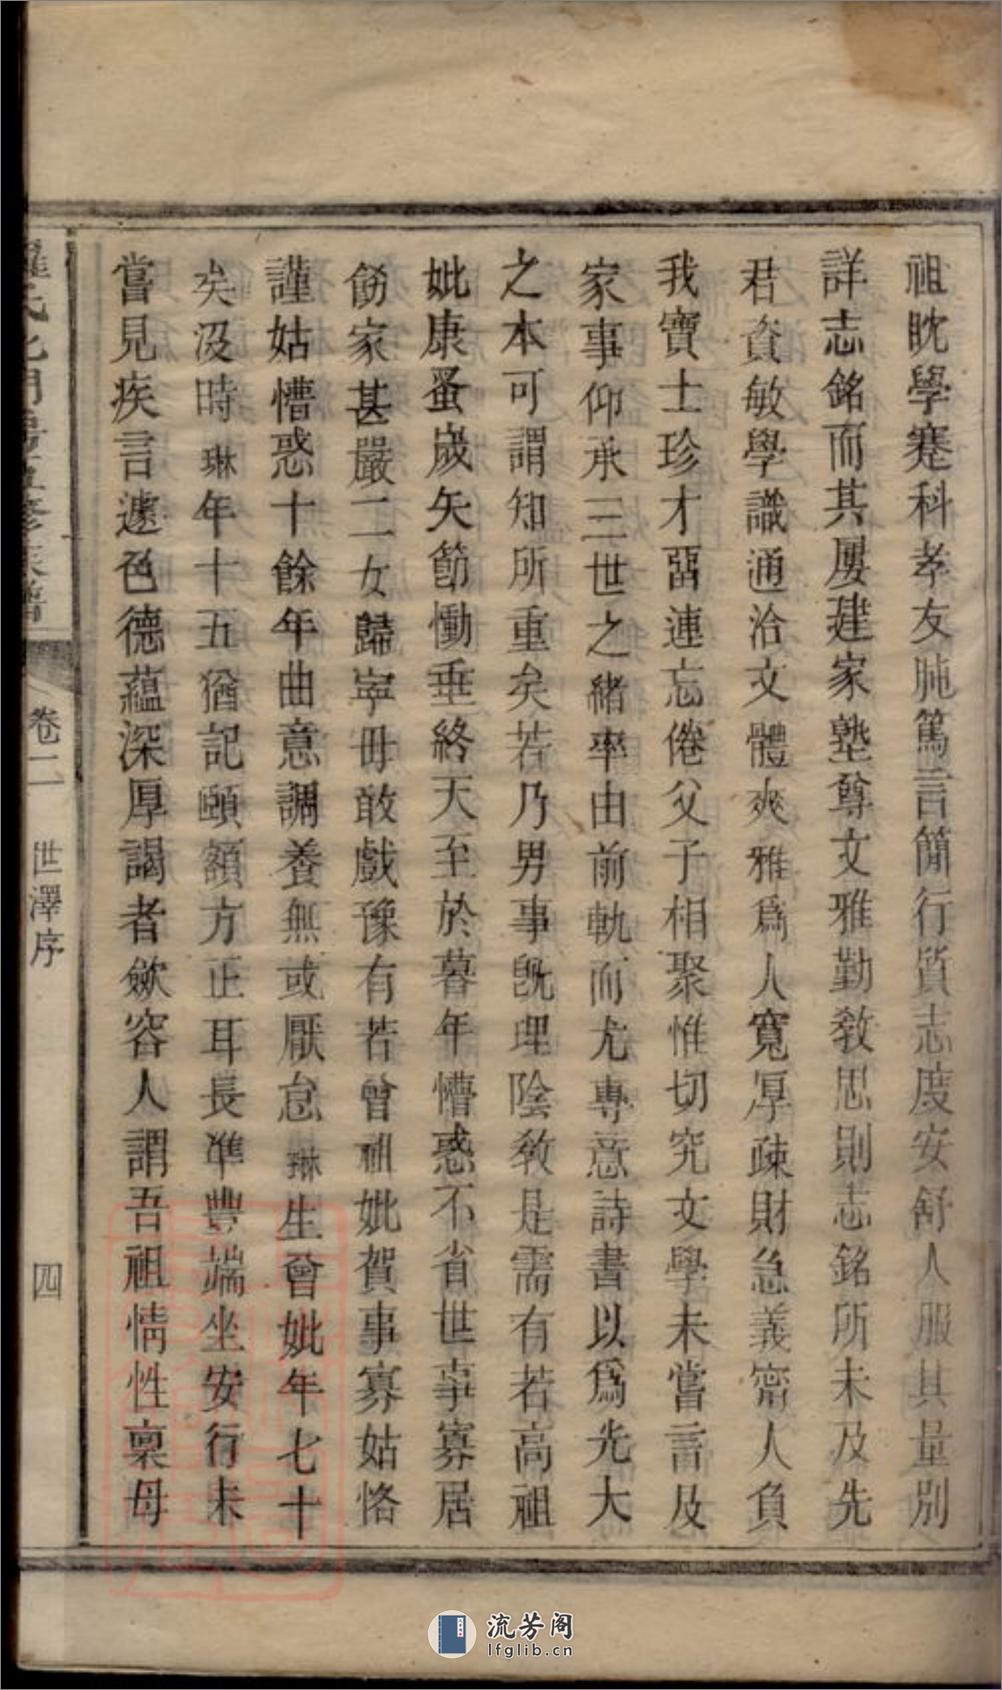 祖眈學蹇科孝友肫篤言簡行質志度安舒人服其量別
詳志銘而其屢建家塾尊文雅勤敎思則志銘所未及先
君資敏學識通洽文體爽雅爲人寬厚疎財急義濟人負
我寶士珍才畱連忘倦父子相聚惟切究文學未嘗言及
家事仰承三世之緒率由前軌而尤專意詩書以爲先大
之本可謂知所重矣若乃男事旣理陰敎是需有若高祖
妣康蚤歲矢節慟垂終天至於暮年懵惑不省世事寡居
飭家甚嚴二女歸寧毋敢戲豫有若曾祖妣賀事寡姑恪
謹姑懵惑十餘年曲意調養無或厭怠琳生曾妣年七十
矣沒時琳年十五猶記頤額方正耳長準豐端坐安行未
嘗見疾言遽色德蘊深厚謁者歛容人謂吾祖情性稟母
羅氏北門房五修族譜
卷二
世澤序
四
流芳阁
lfglib.cn